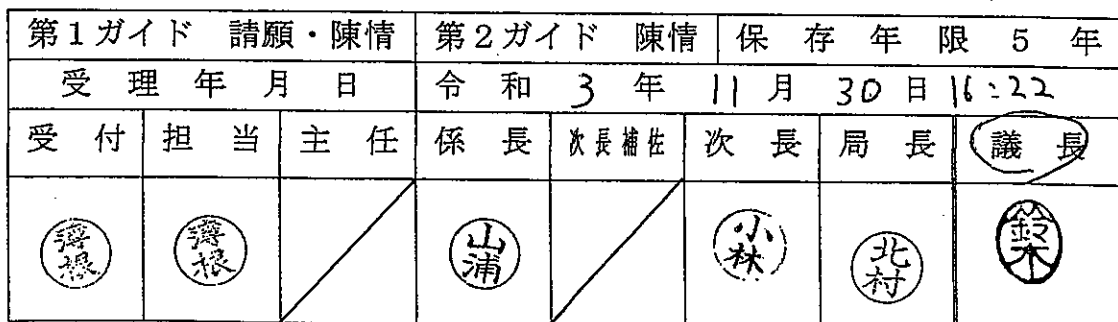 第1ガイド 請願・陳情 第2ガイド 陳情 保存年限 5年
受理年月日 令和 3 年 11 月 30 日 16:22
受付 担当 主任 係長 次長補佐 次長 局長 議長
薄根 薄根 山浦 小林 北村 鈴木